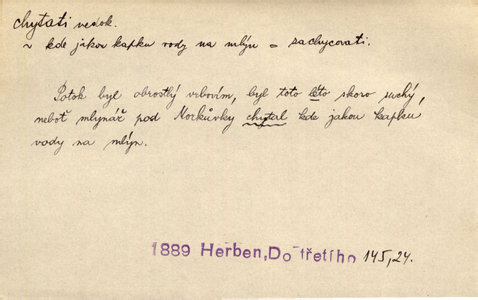 chytati nedok.
~ kde jakou kapku vody na mlýn = zachycovati.
Potok byl obrostlý vrbovím, byl toto léto skoro suchý,
neboť mlynář pod Morkůvky chytal kde jakou kapku
vody na mlýn.
1889 Herben, Do třetího 145,24.